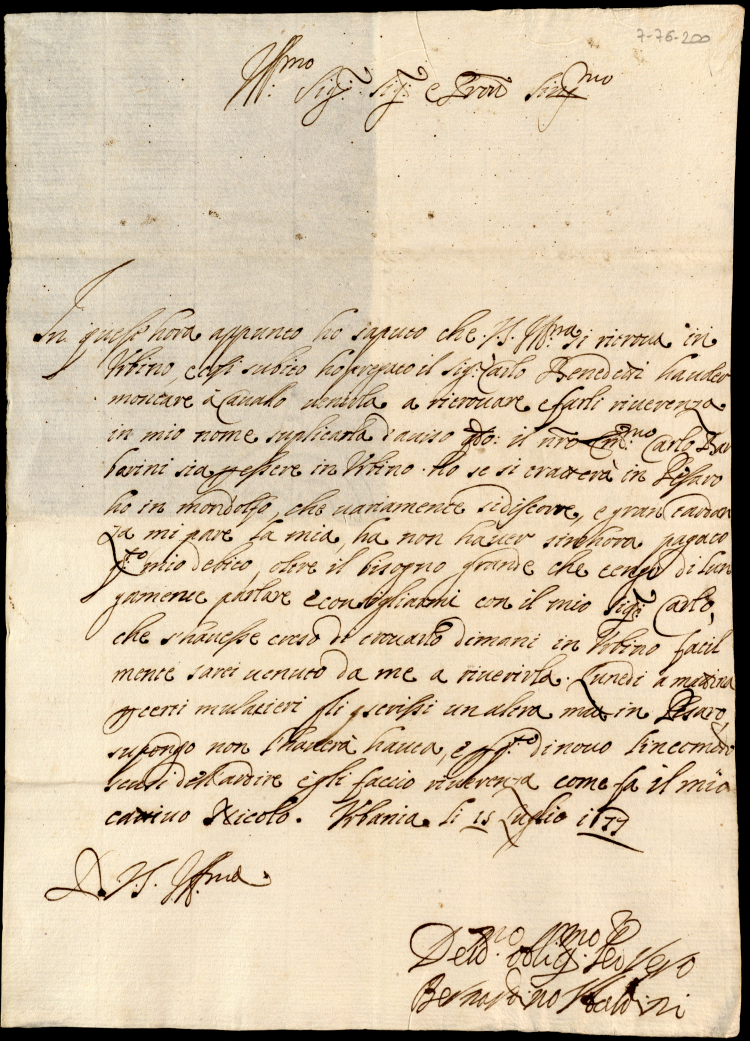 7-76-200
Ill.mo Sig.r Sig.r e Pron Sing.mo
In quest'hora appunto ho saputo che V.S. Ill.ma si ritrova in
Urbino, e così subito ho pregato il Sig.r Carlo Benedetti ha voler
montare à Cavallo venirla a ritrovare e farli riverenza
in mio nome suplicarla d'aviso qdo: il nr̃o Em.mo Carlo Bar
barini sia p essere in Urbino. ho se si tratterà in Pesaro
ho in mondolfo, che variamente si discorre, e gran tardan
za mi pare la mia, ha non haver sinhora pagato
q.to mio debito, oltre il bisogno grande che tengo di lun
gamente parlare e consigliarmi con il mio Sig.r Carlo,
che s'havesse creso di trovarlo dimani in Urbino facil
mente sarei venuto da me a riverirla. Lunedi a matina
p certi mulatieri gli scrissi un altra ma in Pesaro,
supongo non l'haverà hauta, e p q.to di novo l'incomodo
scusi dell'ardire e gli faccio riverenza come fa il mio
cattivo Nicolo. Urbania li 15 Luglio 1677
D. V.S. Ill.ma
Dev.mo Oblig.mo Se.re Vero
Bernardino Ubaldini